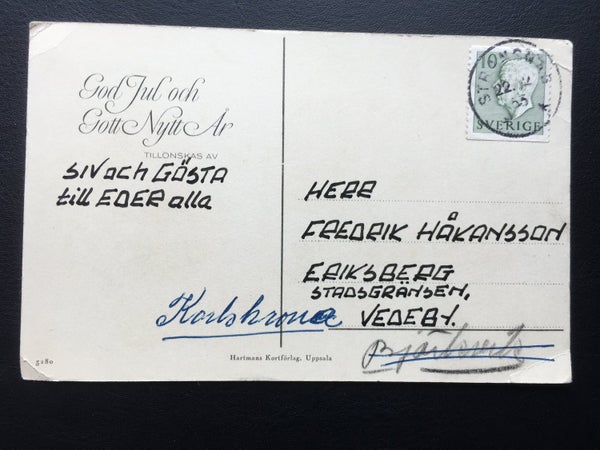 God Jul och
Gott Nytt År
TILLÖNSKAS AV
SIV och GÖSTA
till EDER alla
SVERIGE
HERR
FREDRIK HÅKANSSON
ERIKSBERG
STADSGRÄNSEN,
VEDEBY.
Karlskrona
5280
Hartmans Kortförlag, Uppsala